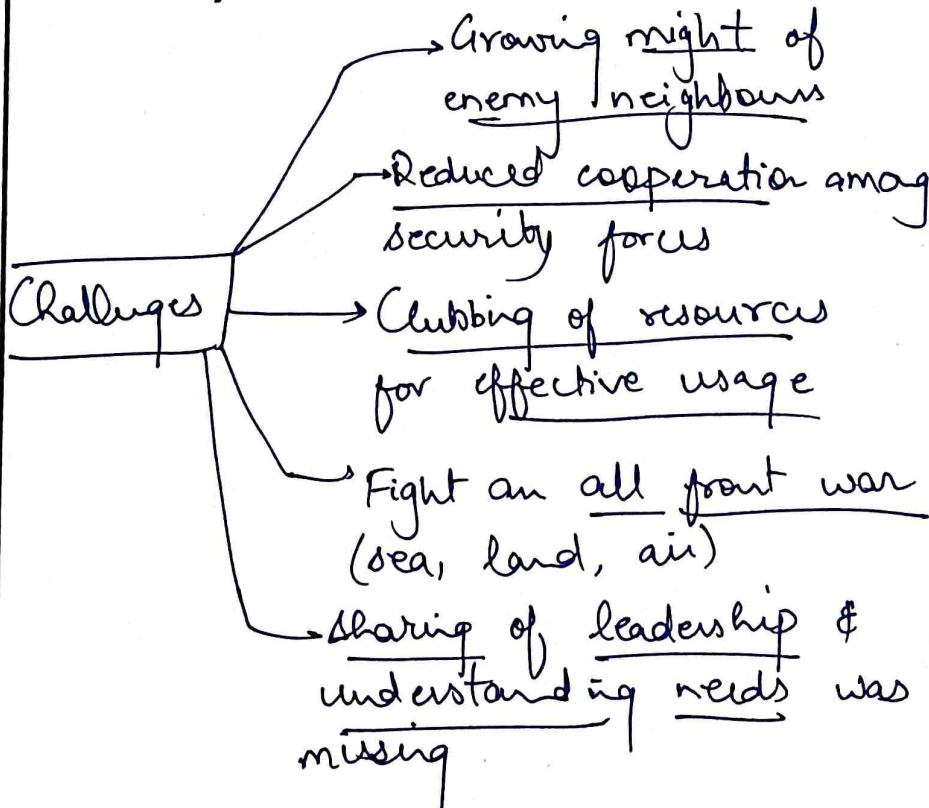 Growing might of
enemy neighbours
Reduced cooperation among
security forces
Challenges
Clubbing of resources
for effective usage
Fight an all front war
(sea, land, air)
Sharing of leadership &
understanding needs was
missing